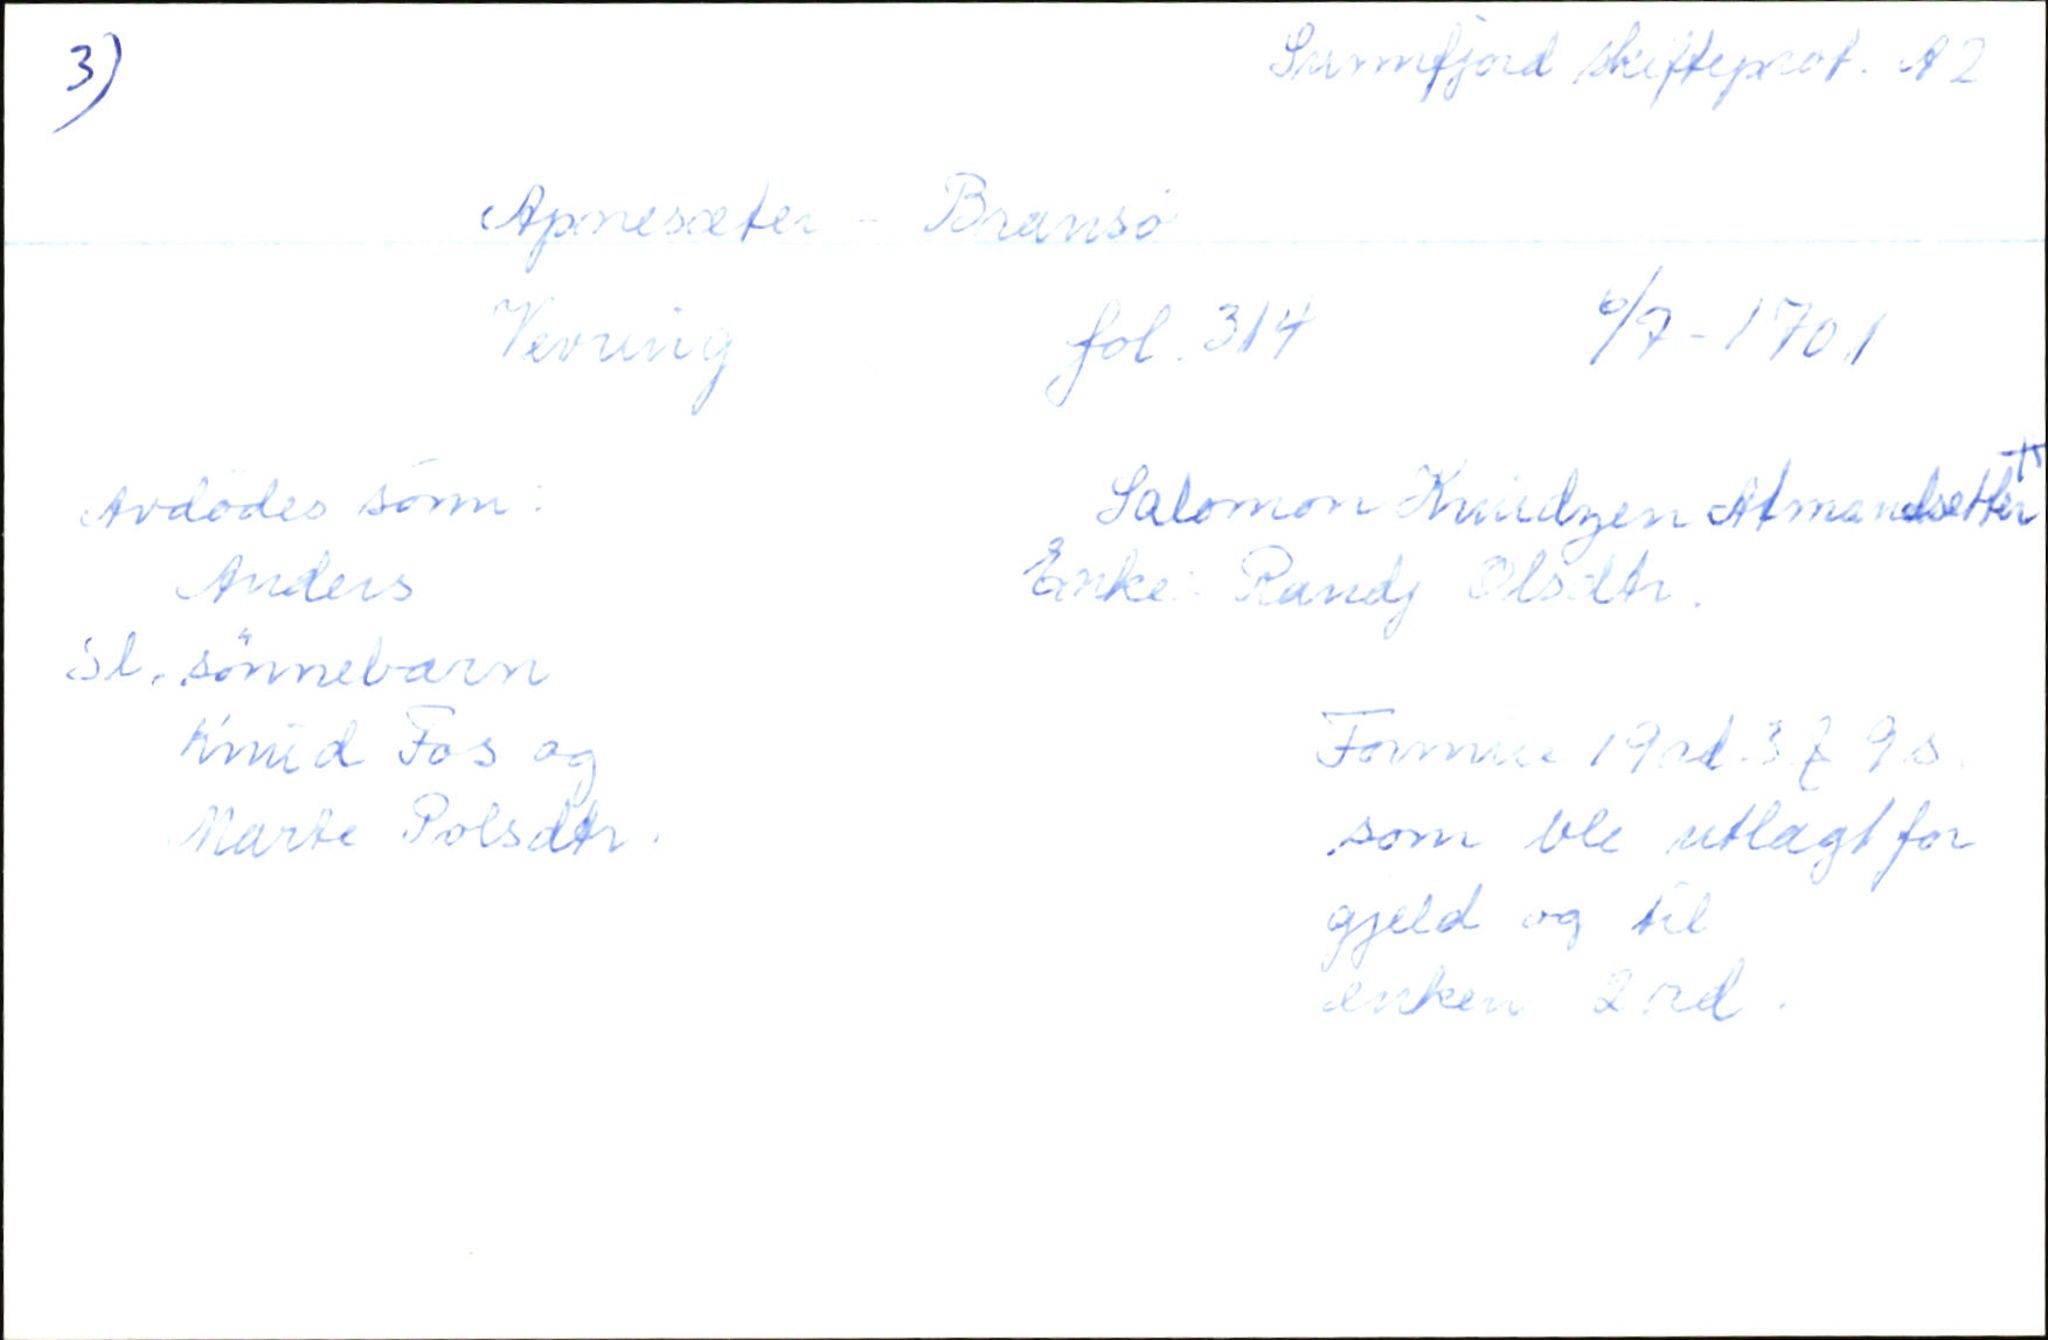 3)
Sunnfjord skifteprot. A 2
Apnesæter - Bransö
Vevring fol. 314 6/7-1701
Avdödes sönn:
Anders
Sl. sönnebarn
Knud Fos og
Marte Polsdtr.
Salomon Knudzen Atmandsetter
Enke: Randj Olsdtr.
Formue 19 rd. 3 9 s.
som ble utlagt for
gjeld og til
enken 2 rd.